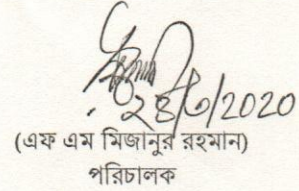 ২৪/৩/2020
(এফ এম মিজানুর রহমান)
পরিচালক